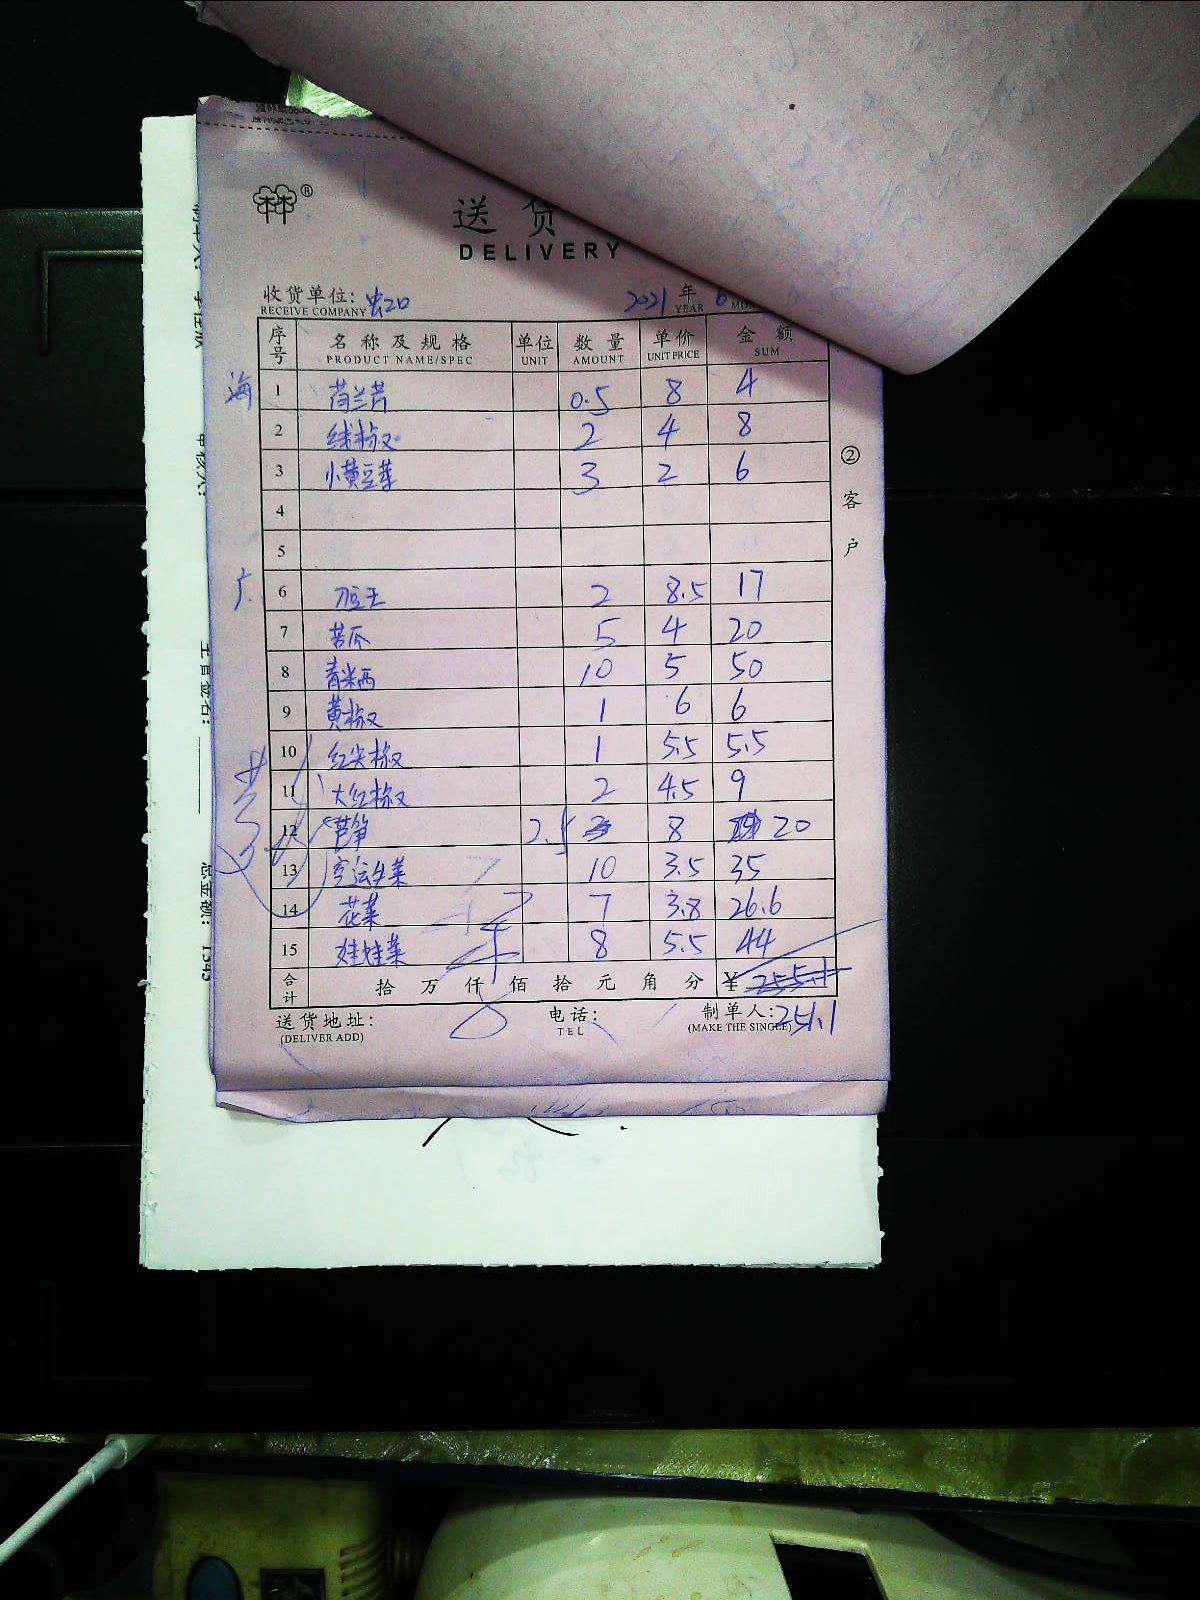 送货
DELIVERY
收货单位: 虫20 2021 年 6
RECEIVE COMPANY YEAR
序号 名称及规格 单位 数量 单价 金额
PRODUCT NAME/SPEC UNIT AMOUNT UNIT PRICE SUM
海 1 荷兰芹 0.5 8 4
2 线椒 2 4 8
3 小黄豆芽 3 2 6
4
5
广 6 豆王 2 8.5 17
7 苦瓜 5 4 20
8 青米西 10 5 50
9 黄椒 1 6 6
10 红尖椒 1 5.5 5.5
11 大红椒 2 4.5 9
12 芦笋 2.5 8 20
13 空运生菜 10 3.5 35
14 花菜 7 3.8 26.6
15 娃娃菜 8 5.5 44
合计 拾万仟佰拾元角分 ¥ 255.1
送货地址: 电话: 制单人: 251.1
(DELIVER ADD) TEL (MAKE THE SINGLE)
②客户